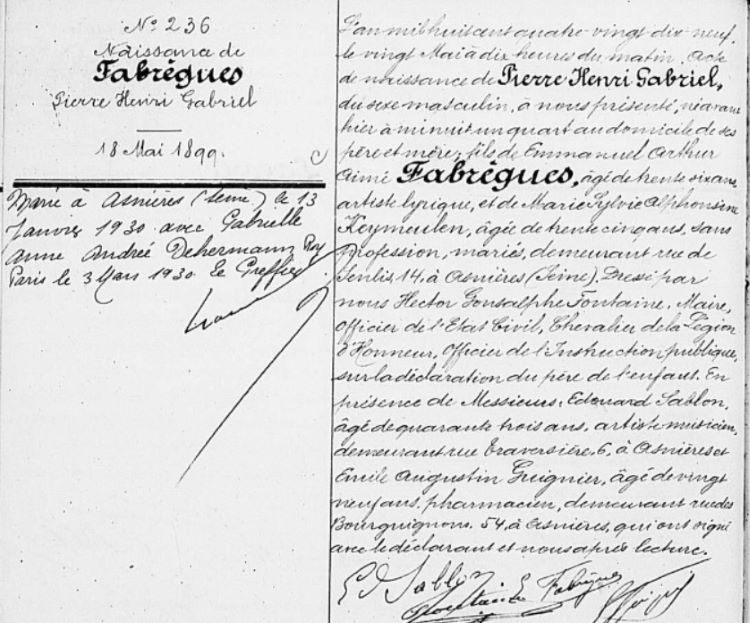 N° 236
Naissance de
Fabrègues
Pierre Henri Gabriel
18 Mai 1899.
Marié à Asnières (Seine) le 13
Janvier 1930 avec Gabrielle
Anne Andrée Dehermann
Paris le 3 Mars 1930 Le Greffier
L'an mil huit cent quatre-vingt-dix-neuf,
le vingt Mai à dix heures du matin. Acte
de naissance de Pierre Henri Gabriel,
du sexe masculin, à nous présenté, né avant
hier à minuit un quart au domicile de ses
père et mère; fils de Emmanuel Arthur
Aimé Fabrègues, âgé de trente six ans,
artiste lyrique, et de Marie Sylvie Alphonsine
Keymeulen, âgée de trente cinq ans, sans
profession, mariés, demeurant rue de
Senlis, 14, à Asnières (Seine). Dressé par
nous Hector Gonsalphe Fontaine, Maire,
Officier de l'Etat Civil, Chevalier de la Légion
d'Honneur, Officier de l'Instruction publique,
sur la déclaration du père de l'enfant. En
présence de Messieurs: Edouard Sablon,
âgé de quarante trois ans, artiste musicien,
demeurant rue Traversière, 6, à Asnières et
Emile Augustin Guignier, âgé de vingt
neuf ans, pharmacien, demeurant rue des
Bourguignons, 54, à Asnières, qui ont signé
avec le déclarant et nous après lecture.
Ed Sablon E Fabrègues